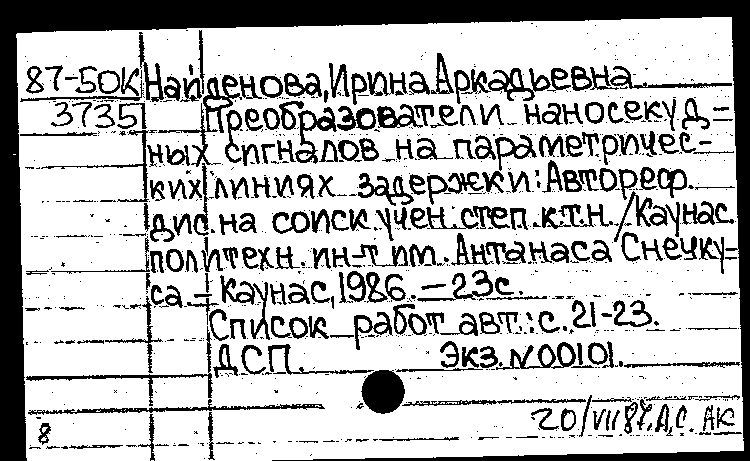 87-50К Найденова, Ирина Аркадьевна.
3735 Преобразователи наносекуд-
ных сигналов на параметричес-
ких линиях задержки: Автореф.
дис. на соиск. учен. степ. к.т.н. / Каунас.
политехн. ин-т им. Антанаса Снечку-
са. – Каунас, 1986. – 23с.
Список работ авт.: с. 21-23.
ДСП. Экз. N00101.
20/VII 87. А.С. АК
8